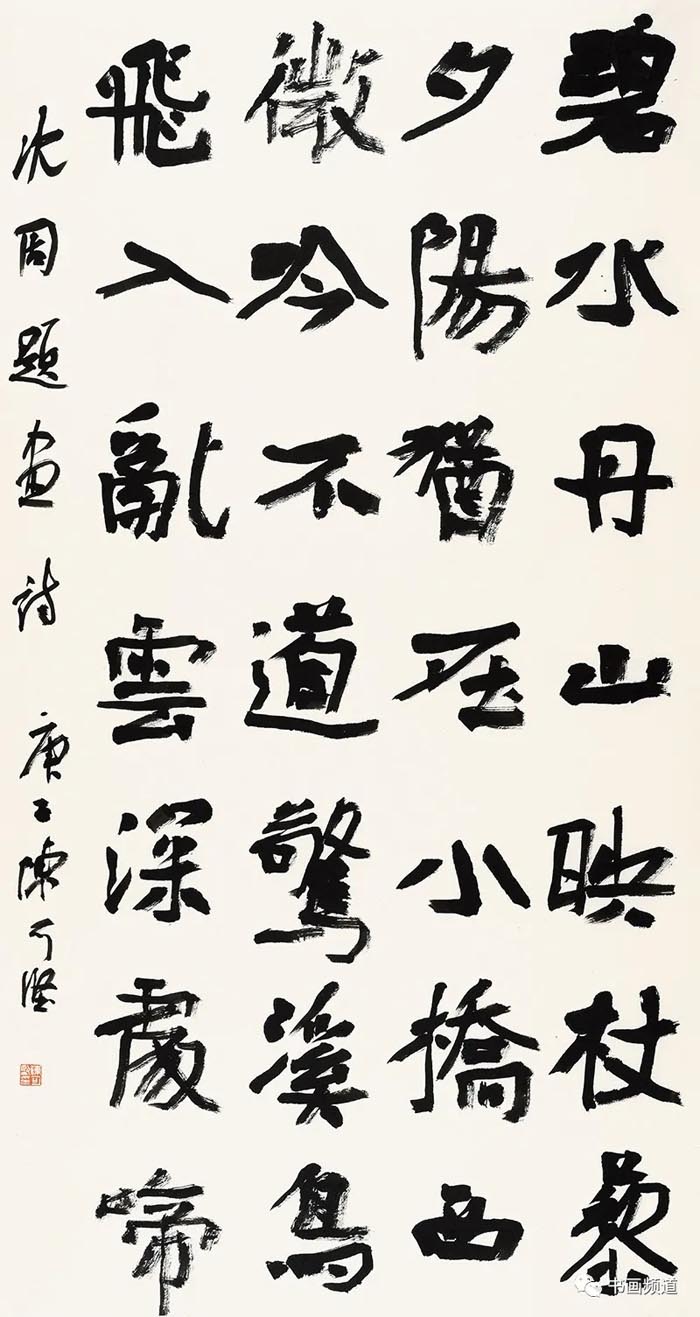 碧水丹山映杖藜
夕陽猶在小橋西
微吟不道驚溪鳥
飛入亂雲深處啼
沈周題畫詩 庚子陳
书画频道